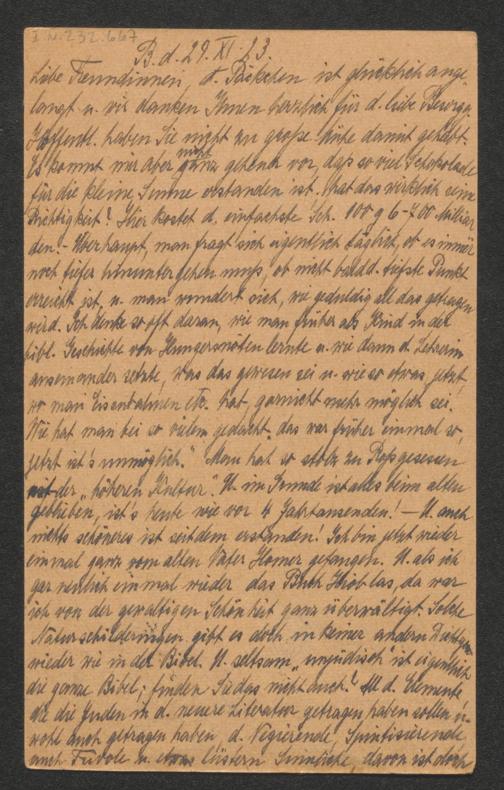 I.N. 232.667
B. d. 29. XI. 23.
Liebe Freundinnen, d. Päckchen ist glücklich ange-
langt u. wir danken Ihnen herzlich für d. liebe Besorgg.
Hoffentl. haben Sie nicht zu große Mühe damit gehabt.
Es kommt mir aber nicht ganz geheuer vor, daß so viel Schokolade
für die kleine Summe erstanden ist. Hat das wirklich seine
Richtigkeit? Hier kostet d. einfachste Sch. 100 g 6-700 Milliar-
den. – Überhaupt, man fragt sich eigentlich täglich, ob es immer
noch tiefer hinuntergehen muß, ob nicht bald d. tiefste Punkt
erreicht ist, u. man wundert sich, wie geduldig all das getragen
wird. Ich denke so oft daran, wie man früher als Kind in der
bibl. Geschichte von Hungersnöten lernte u. wie dann d. Lehrerin
auseinander setzte, was das gewesen sei u. wie so etwas jetzt,
wo man Eisenbahnen etc. hat, garnicht mehr möglich sei.
Wie hat man bei so vielem gedacht, das war früher einmal so,
jetzt ist's unmöglich." Man hat so stolz zu Roß gesessen
mit der "höheren Kultur". U. im Grunde ist alles beim alten
geblieben, ist's heute wie vor 4 Jahrtausenden! – U. auch
nichts schöneres ist seitdem erstanden! Ich bin jetzt wieder
einmal ganz vom alten Vater Homer gefangen. U. als ich
gar neulich einmal wieder das Buch Hiob las, da war
ich von der gewaltigen Schönheit ganz überwältigt. Solche
Naturschilderungen gibt es doch in keiner andern
wieder wie in der Bibel. U. seltsam, "unjüdisch" ist eigentlich
die ganze Bibel; finden Sie das nicht auch? All d. Elemente
die die Juden in d. neuere Literatur getragen haben sollen u.
wohl auch getragen haben, d. Negierende, Spintisierende
auch Frivole u. etwas lüstern Sinnliche, davon ist doch